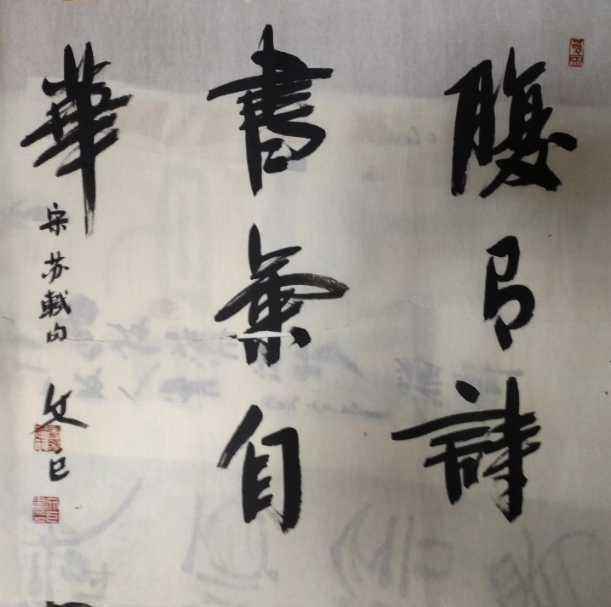 腹有詩
書氣自
華
宋苏軾句 文